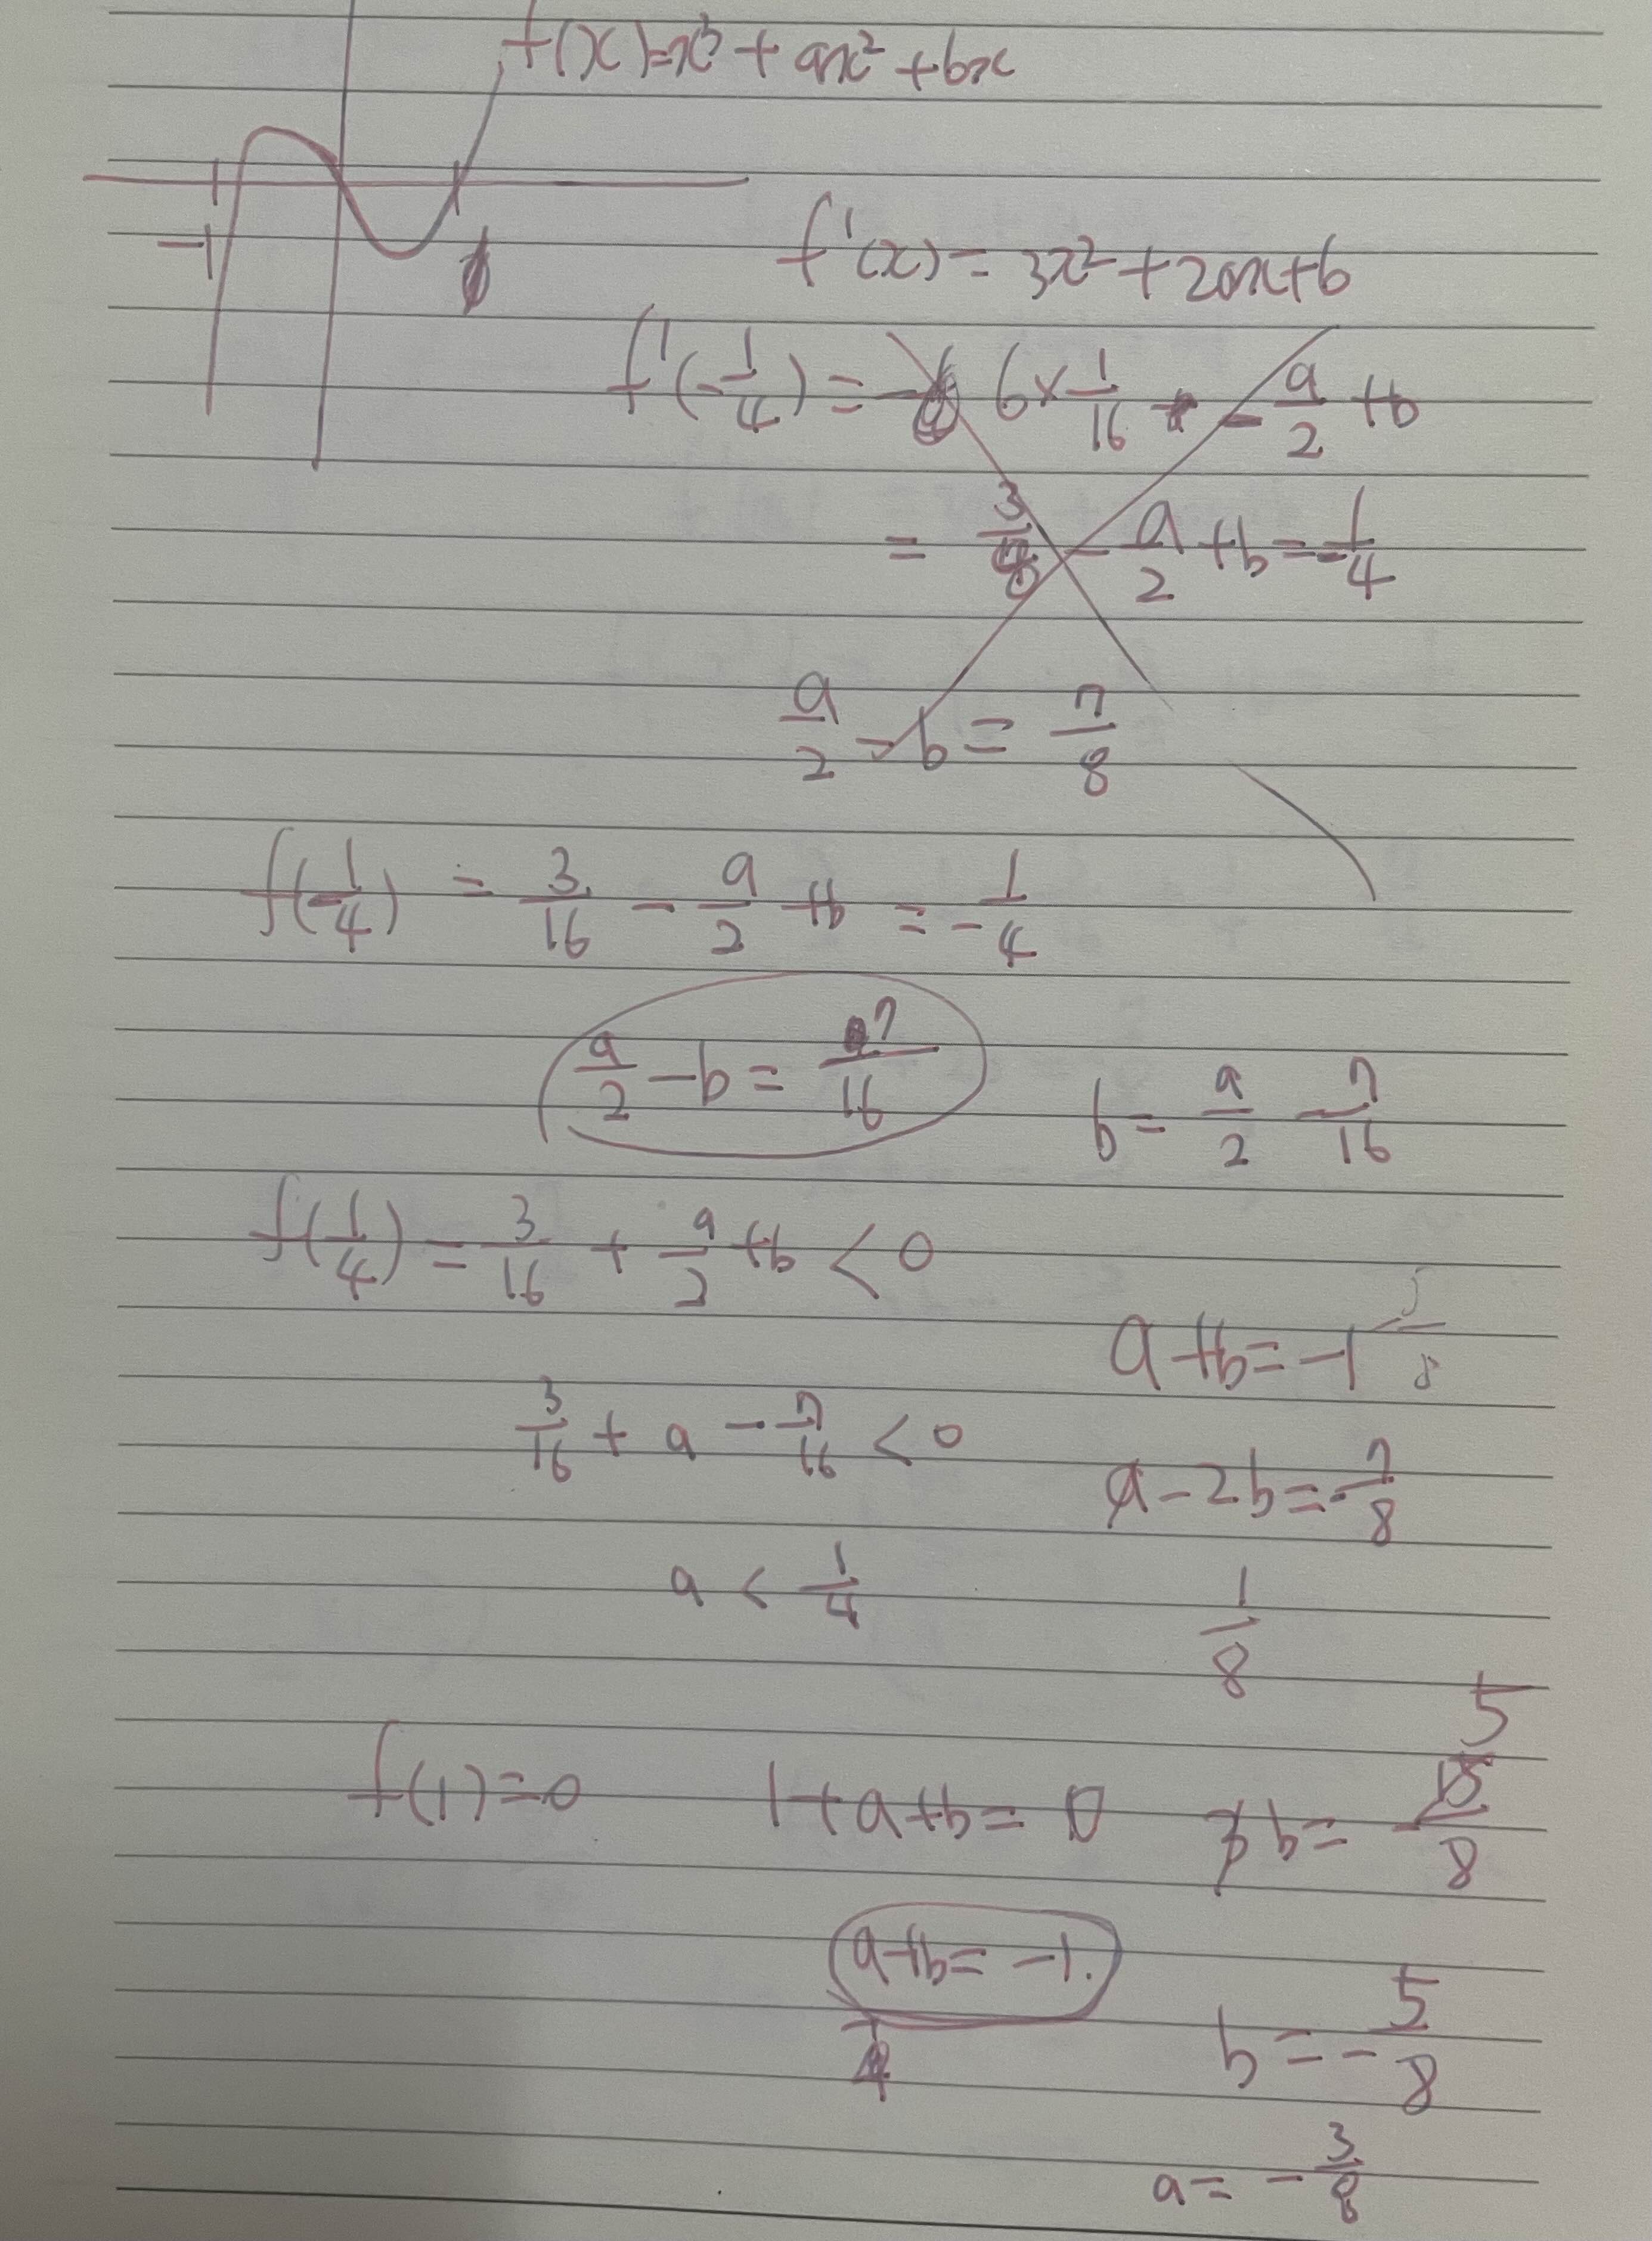 f(x)=x³+ax²+bx
-1
f'(x)=3x²+2ax+b
f'(-1/4)=- 6×1/16 - a/2 +b
= 3/8 - a/2 +b=-1/4
a/2 -b= 7/8
f(-1/4) = 3/16 - a/2 +b = -1/4
a/2 -b= 7/16
b= a/2 - 7/16
f(1/4)= 3/16 + a/2 +b <0
a+b=-1
5/8
3/16 + a - 7/16 <0
a-2b=-7/8
a < 1/4
1/8
f(1)=0 1+a+b=0
5
3b=-15/8
a+b=-1.
b=-5/8
a=-3/8